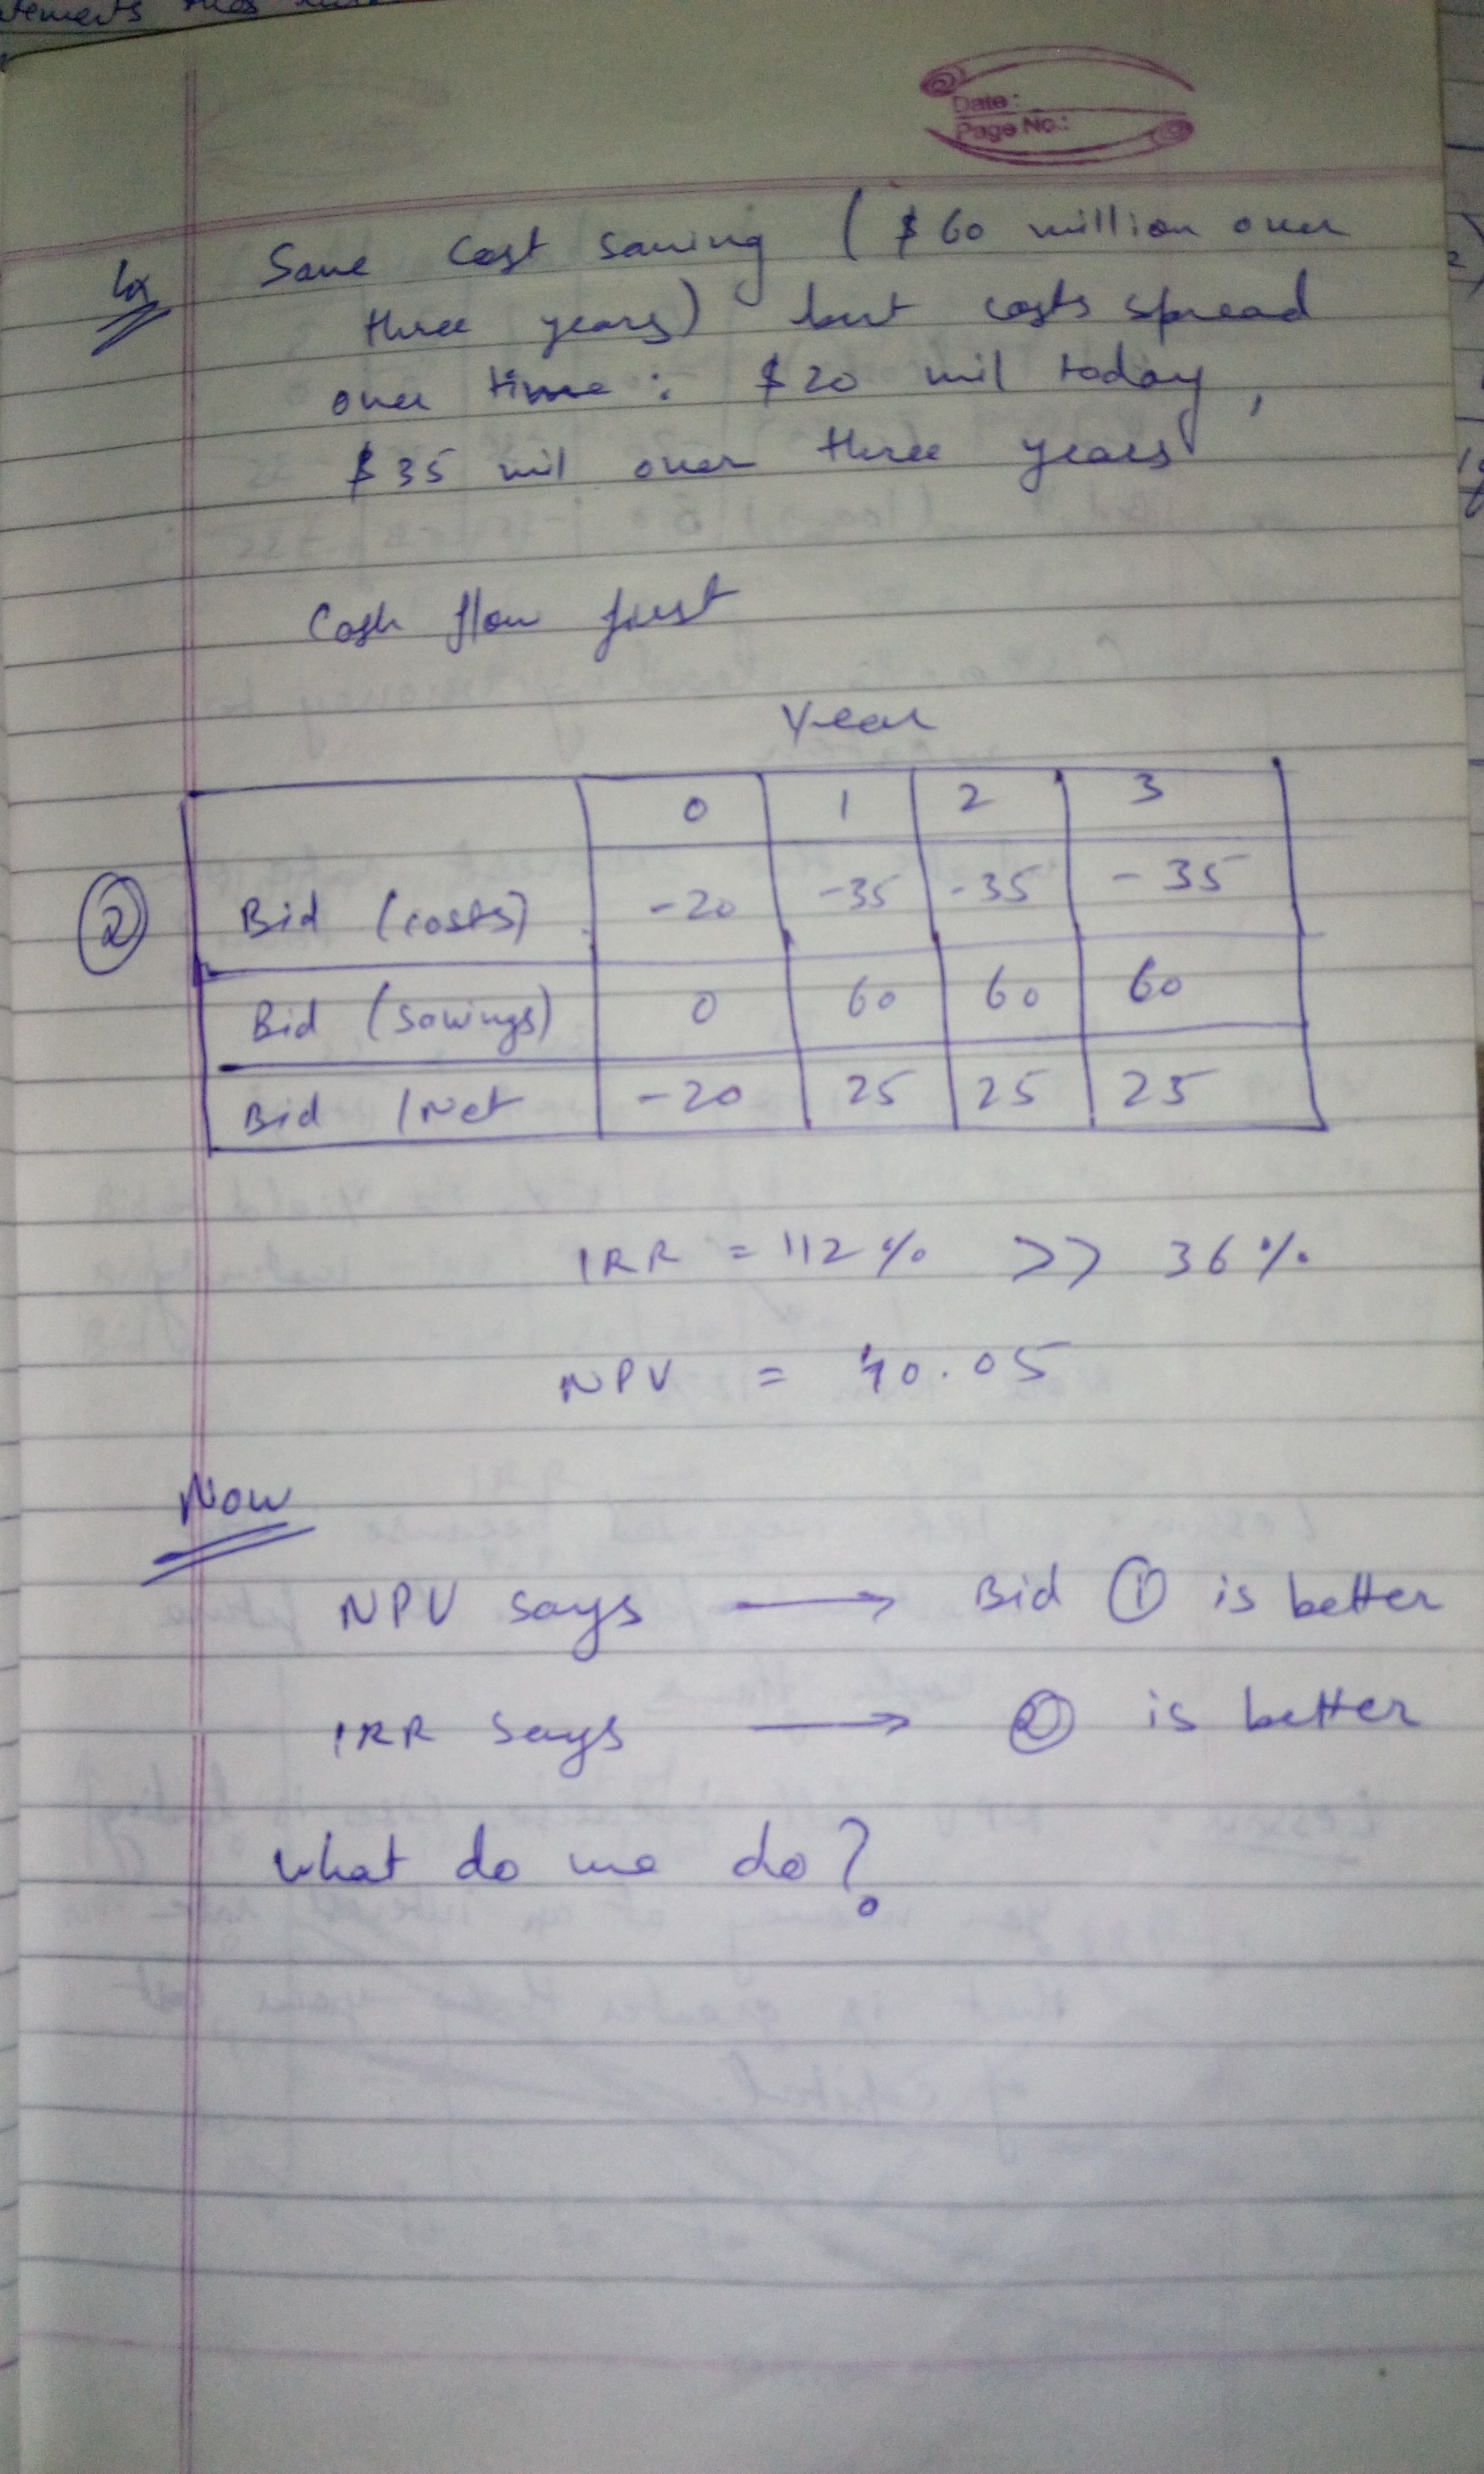 Date:
Page No.:
Ex Same cost saving ( $ 60 million over
three years) but costs spread
over time : $ 20 mil today,
$ 35 mil over three years
Cash flow first
Year
0 1 2 3
② Bid (costs) -20 -35 -35 -35
Bid (savings) 0 60 60 60
Bid / Net -20 25 25 25
IRR = 112 % >> 36 %
NPV = 40.05
Now
NPV says → Bid ① is better
IRR says → ② is better
what do we do?